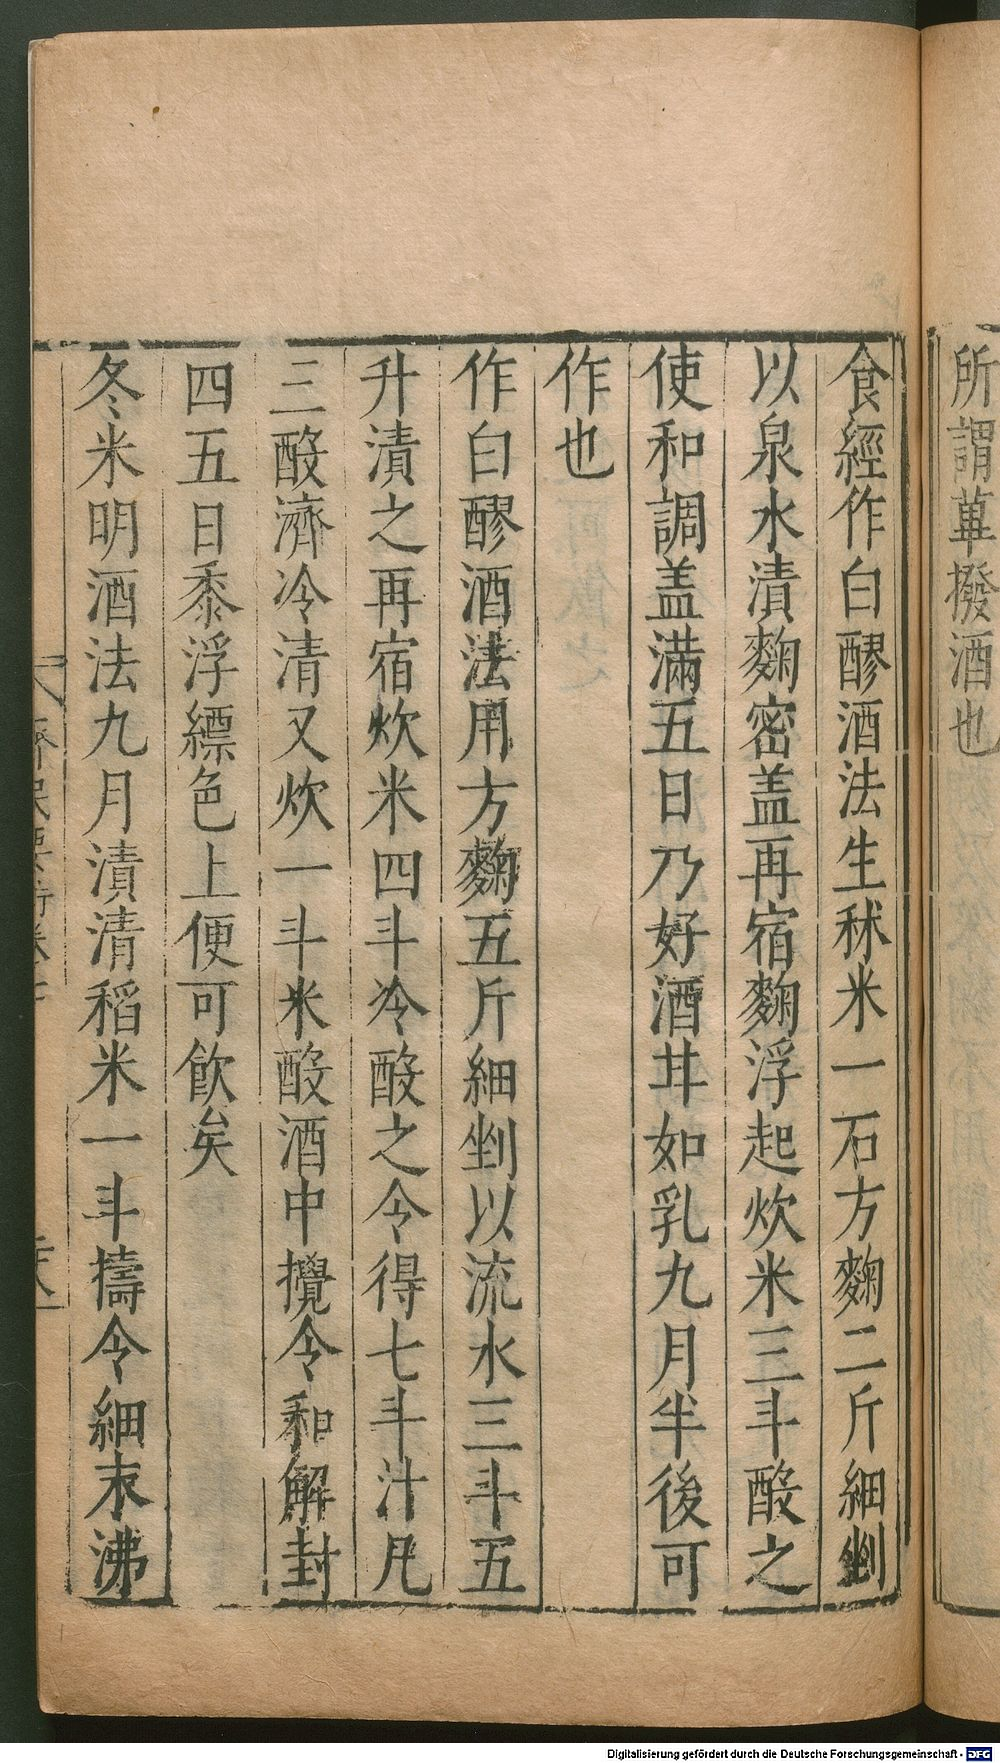 所謂蓽撥酒也
食經作白醪酒法生秫米一石方麴二斤細剉
以泉水漬麴密盖再宿麴浮起炊米三斗酘之
使和調盖滿五日乃好酒甘如乳九月半後可
作也
作白醪酒法用方麴五斤細剉以流水三斗五
升漬之再宿炊米四斗冷酘之令得七斗汁凡
三酘濟冷清又炊一斗米酘酒中攪令和解封
四五日黍浮縹色上便可飲矣
冬米明酒法九月漬清稻米一斗擣令細末沸
Digitalisierung gefördert durch die Deutsche Forschungsgemeinschaft - DFG